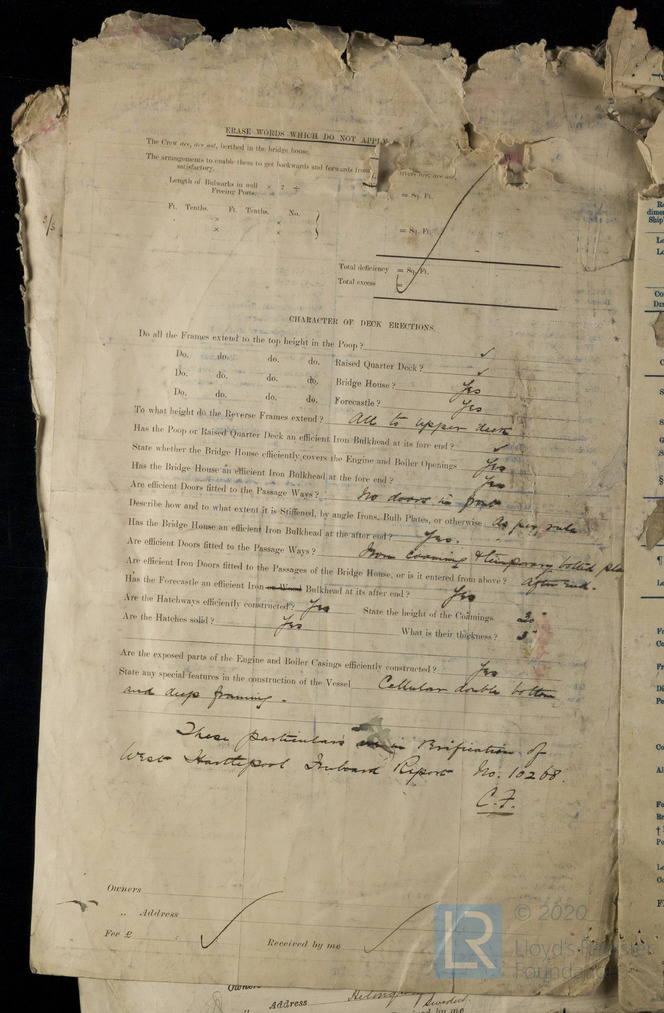 ERASE WORDS WHICH DO NOT APPLY
The Crew are, are not, berthed in the bridge house.
The arrangements to enable them to get backwards and forwards from
satisfactory.
Length of Bulwarks in well × 2 ÷ = Sq. Ft.
Freeing Ports.
Ft. Tenths. Ft. Tenths. No.
×
× = Sq. Ft.
Total deficiency = Sq. Ft.
Total excess =
CHARACTER OF DECK ERECTIONS.
Do all the Frames extend to the top height in the Poop? ✓
Do. do. do. do. Raised Quarter Deck? ✓
Do. do. do. do. Bridge House? Yes
Do. do. do. do. Forecastle? Yes
To what height do the Reverse Frames extend? All to upper deck
Has the Poop or Raised Quarter Deck an efficient Iron Bulkhead at its fore end? ✓
State whether the Bridge House efficiently covers the Engine and Boiler Openings Yes
Has the Bridge House an efficient Iron Bulkhead at the fore end? Yes
Are efficient Doors fitted to the Passage Ways? No doors in front
Describe how and to what extent it is Stiffened, by angle Irons, Bulb Plates, or otherwise As per rule
Has the Bridge House an efficient Iron Bulkhead at the after end? Yes.
Are efficient Doors fitted to the Passage Ways? Iron coaming & temporary bolted
Are efficient Iron Doors fitted to the Passages of the Bridge House, or is it entered from above? After end.
Has the Forecastle an efficient Iron or Wood Bulkhead at its after end? Yes
Are the Hatchways efficiently constructed? Yes State the height of the Coamings
Are the Hatches solid? Yes What is their thickness? 3"
Are the exposed parts of the Engine and Boiler Casings efficiently constructed? Yes
State any special features in the construction of the Vessel Cellular double bottom
and deep framing.
These particulars are in Verification of
West Hartlepool Freeboard Report No. 10268.
C.F.
Owners
„ Address
Fee £ Received by me
LR © 2020
Lloyd's Register
Foundation
Owners
" Address Sweden
ved by me